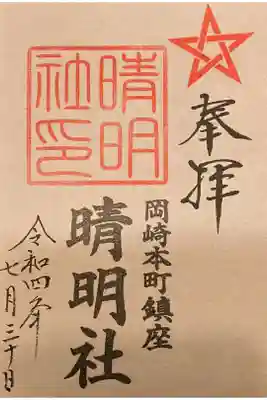 奉拝
岡崎本町鎮座
晴明社
晴明社印
令和四年
七月三十日